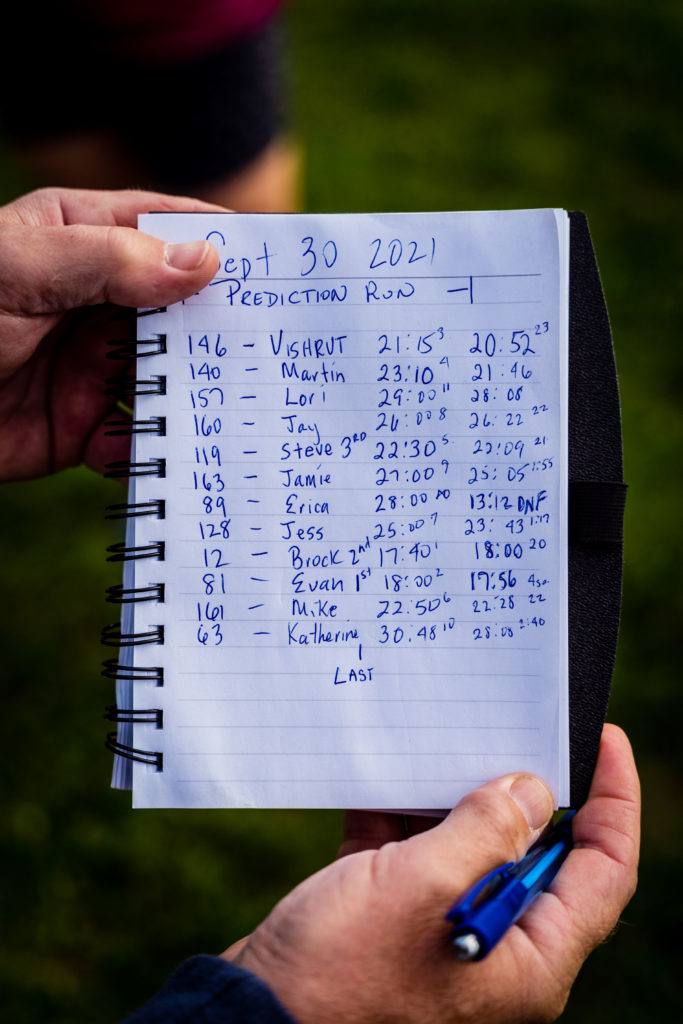 Sept 30 2021
PREDICTION RUN
146 - VISHRUT 21:15 3 20:52 23
140 - Martin 23:10 4 21:46
157 - Lori 29:00 11 28:08
160 - Jay 26:00 8 26:22 22
119 - Steve 3RD 22:30 5 22:09 21
163 - Jamie 27:00 9 25:05 1:55
89 - Erica 28:00 13:12 DNF
128 - Jess 25:00 7 23:43 1:17
12 - Brock 2nd 17:40 1 18:00 20
81 - Evan 1st 18:00 2 17:56
161 - Mike 22:50 6 22:28 22
63 - Katherine 30:48 10 28:08 2:40
LAST